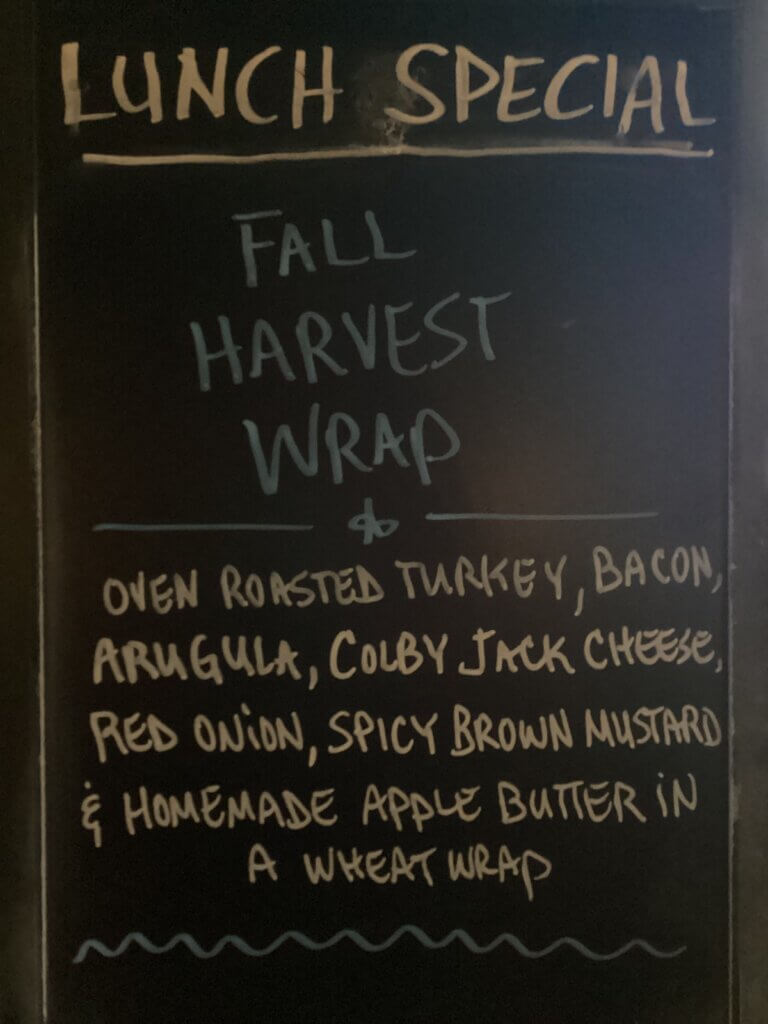 LUNCH SPECIAL
FALL
HARVEST
WRAP
OVEN ROASTED TURKEY, BACON,
ARUGULA, COLBY JACK CHEESE,
RED ONION, SPICY BROWN MUSTARD
& HOMEMADE APPLE BUTTER IN
A WHEAT WRAP